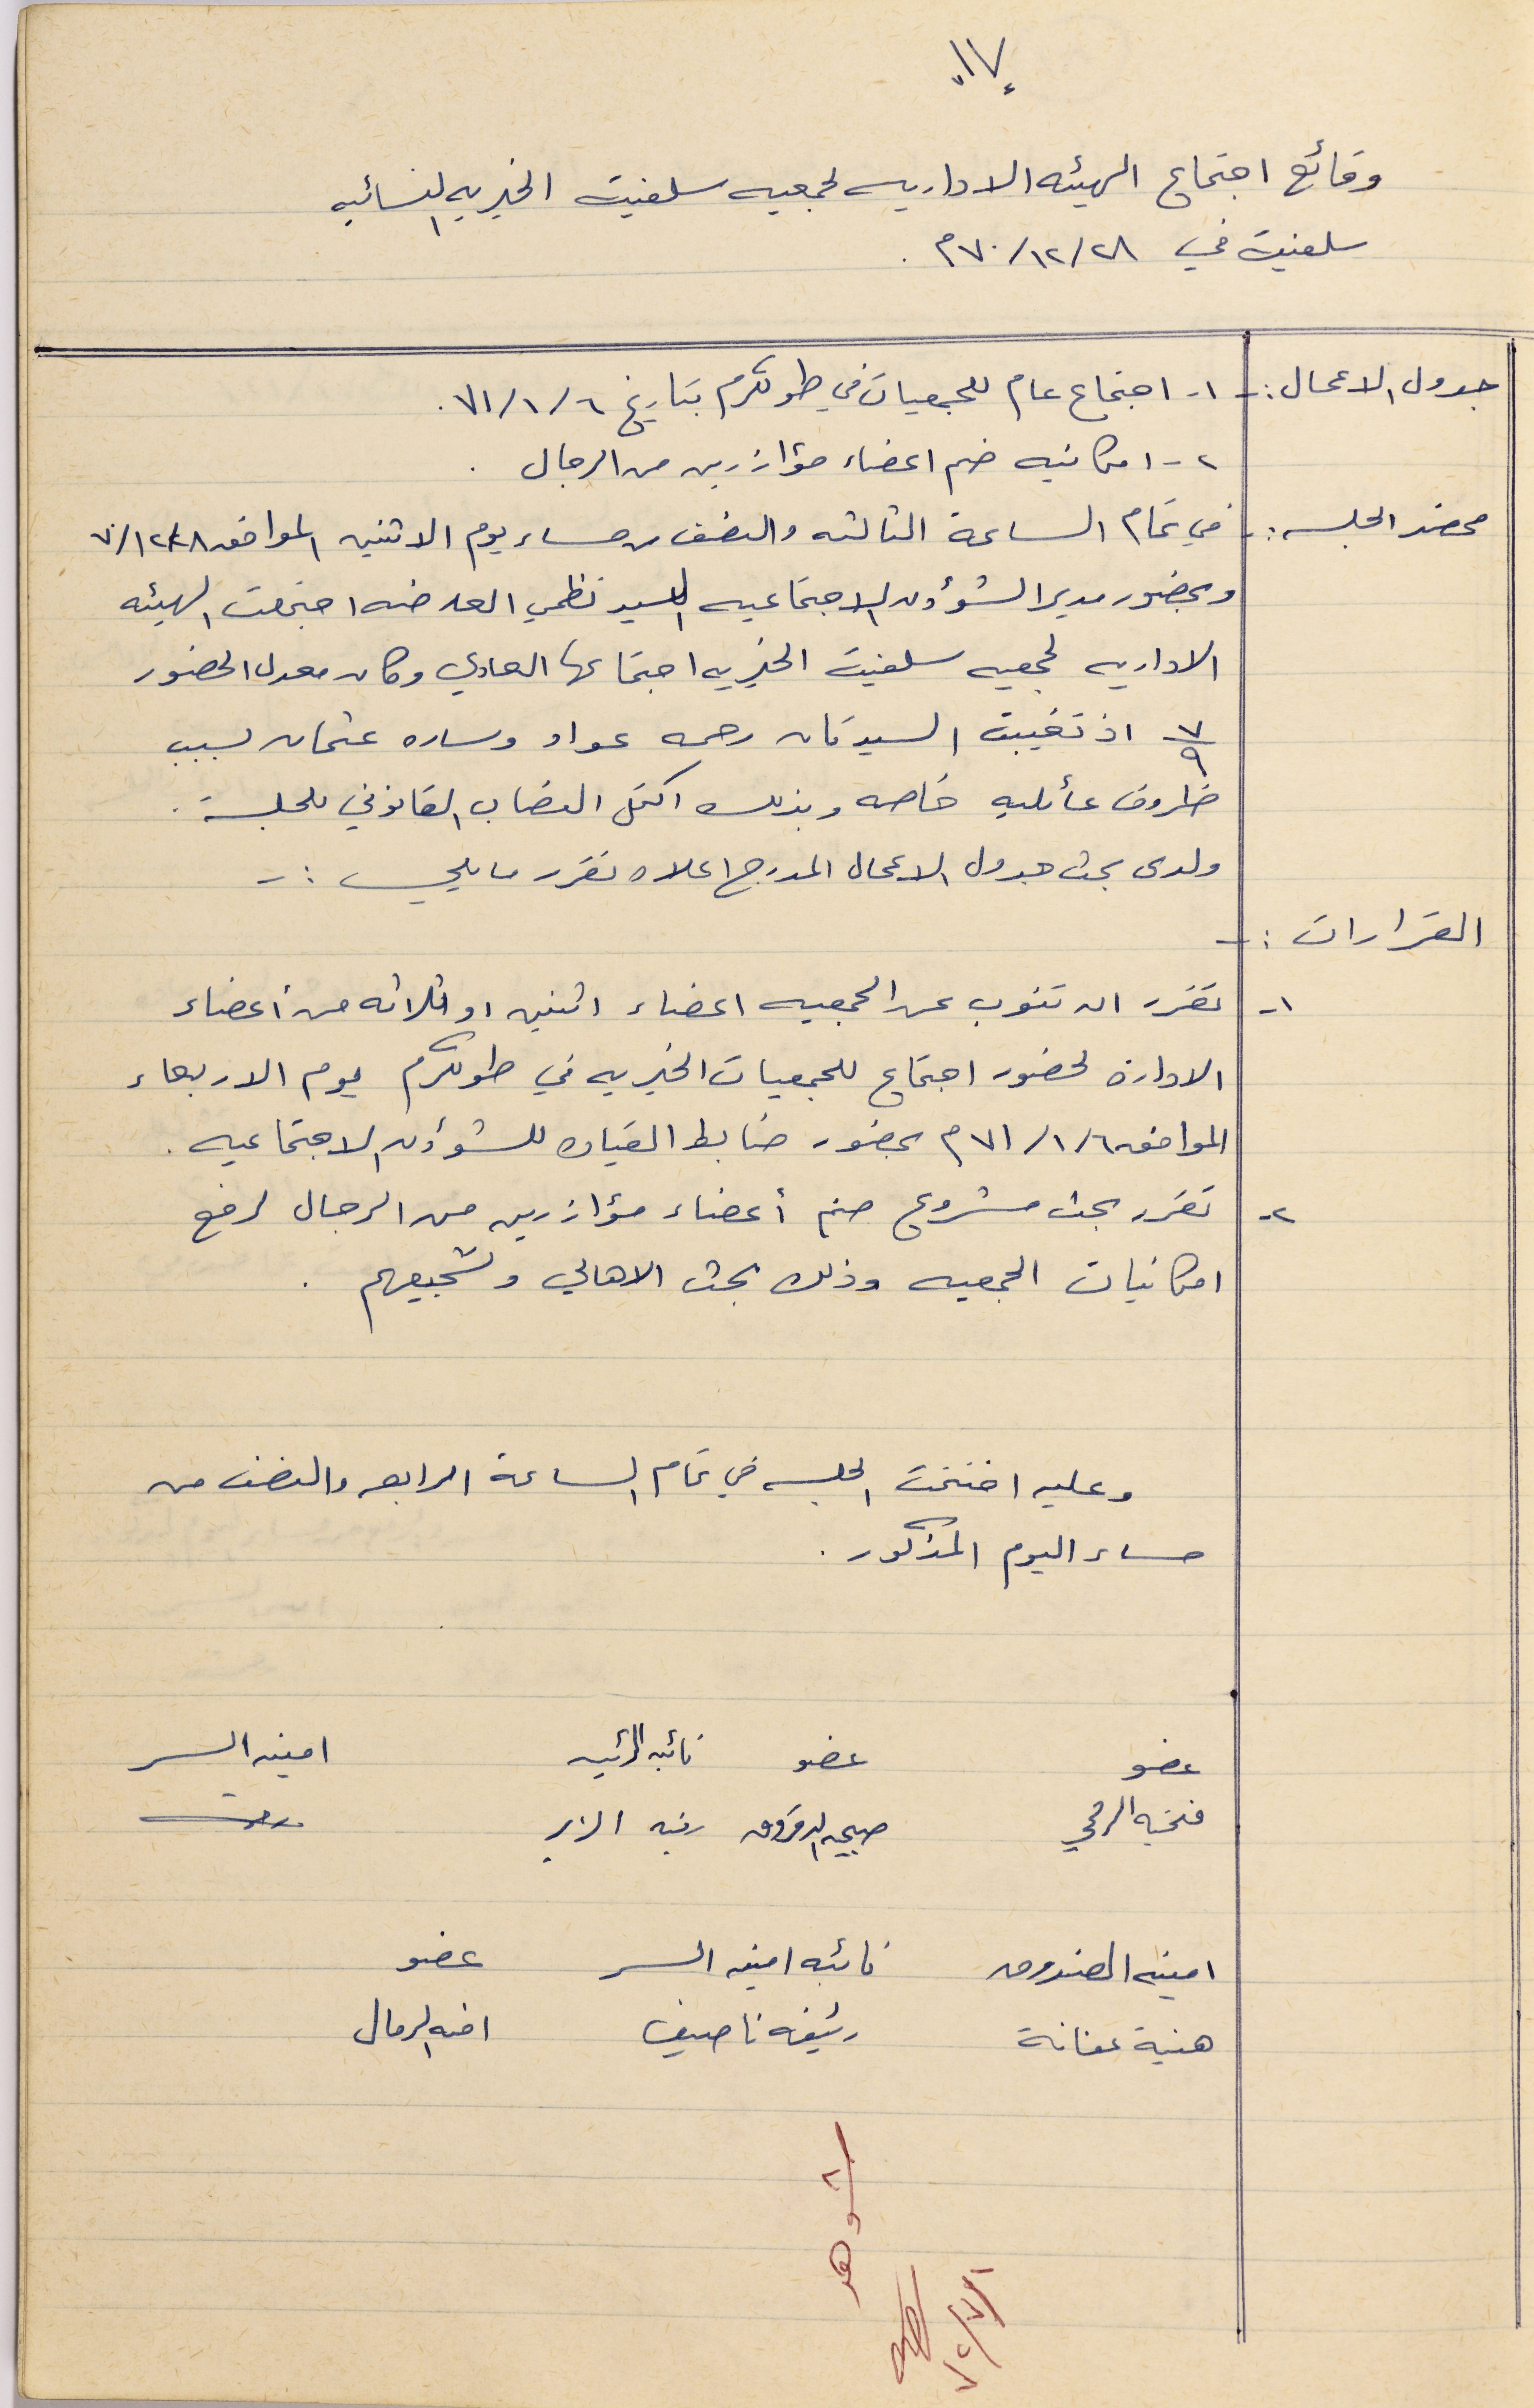 ١٧
وقائع اجتماع الهيئه الاداريه لجمعيه سلفيت الخيريه النسائيه
سلفيت في ٧٠/١٢/٢٨م .
جدول الاعمال :- ١- اجتماع عام للجمعيات في طولكرم بتاريخ ٧١/١/٦ .
٢- امكانيه ضم اعضاء مؤازرين من الرجال .
محضر الجلسه :- في تمام الساعة الثالثه والنصف من مساء يوم الاثنين الموافق ٧٠/١٢/٢٨
وبحضور مدير الشؤون الاجتماعيه السيد نظمي العارضه اجتمعت الهيئه
الاداريه لجمعيه سلفيت الخيريه اجتماعها العادي وكان معدل الحضور
٧/٩ اذ تغيبت السيدتان رحمه عواد وساره عثمان بسبب
ظروف عائليه خاصه وبذلك اكتمل النصاب القانوني للجلسة .
ولدى بحث جدول الاعمال المدرج اعلاه تقرر ما يلي :-
القرارات :-
١- تقرر ان تنوب عن الجمعيه اعضاء اثنين او ثلاثه من أعضاء
الادارة لحضور اجتماع للجمعيات الخيريه في طولكرم يوم الاربعاء
الموافق ٧١/١/٦م بحضور ضابط القياده للشؤون الاجتماعيه .
٢- تقرر بحث مشروع ضم أعضاء مؤازرين من الرجال لرفع
امكانيات الجمعيه وذلك بحث الاهالي وتشجيعهم .
وعليه اختتمت الجلسه في تمام الساعة الرابعه والنصف من
مساء اليوم المذكور .
عضو عضو نائبه الرئيسه امينه السر
فتحيه صبحيه رتيبه الزير
امينه الصندوق نائبه امينه السر عضو
هنية عفانة رئيفه ناصيف امنه الرمال
شوهد